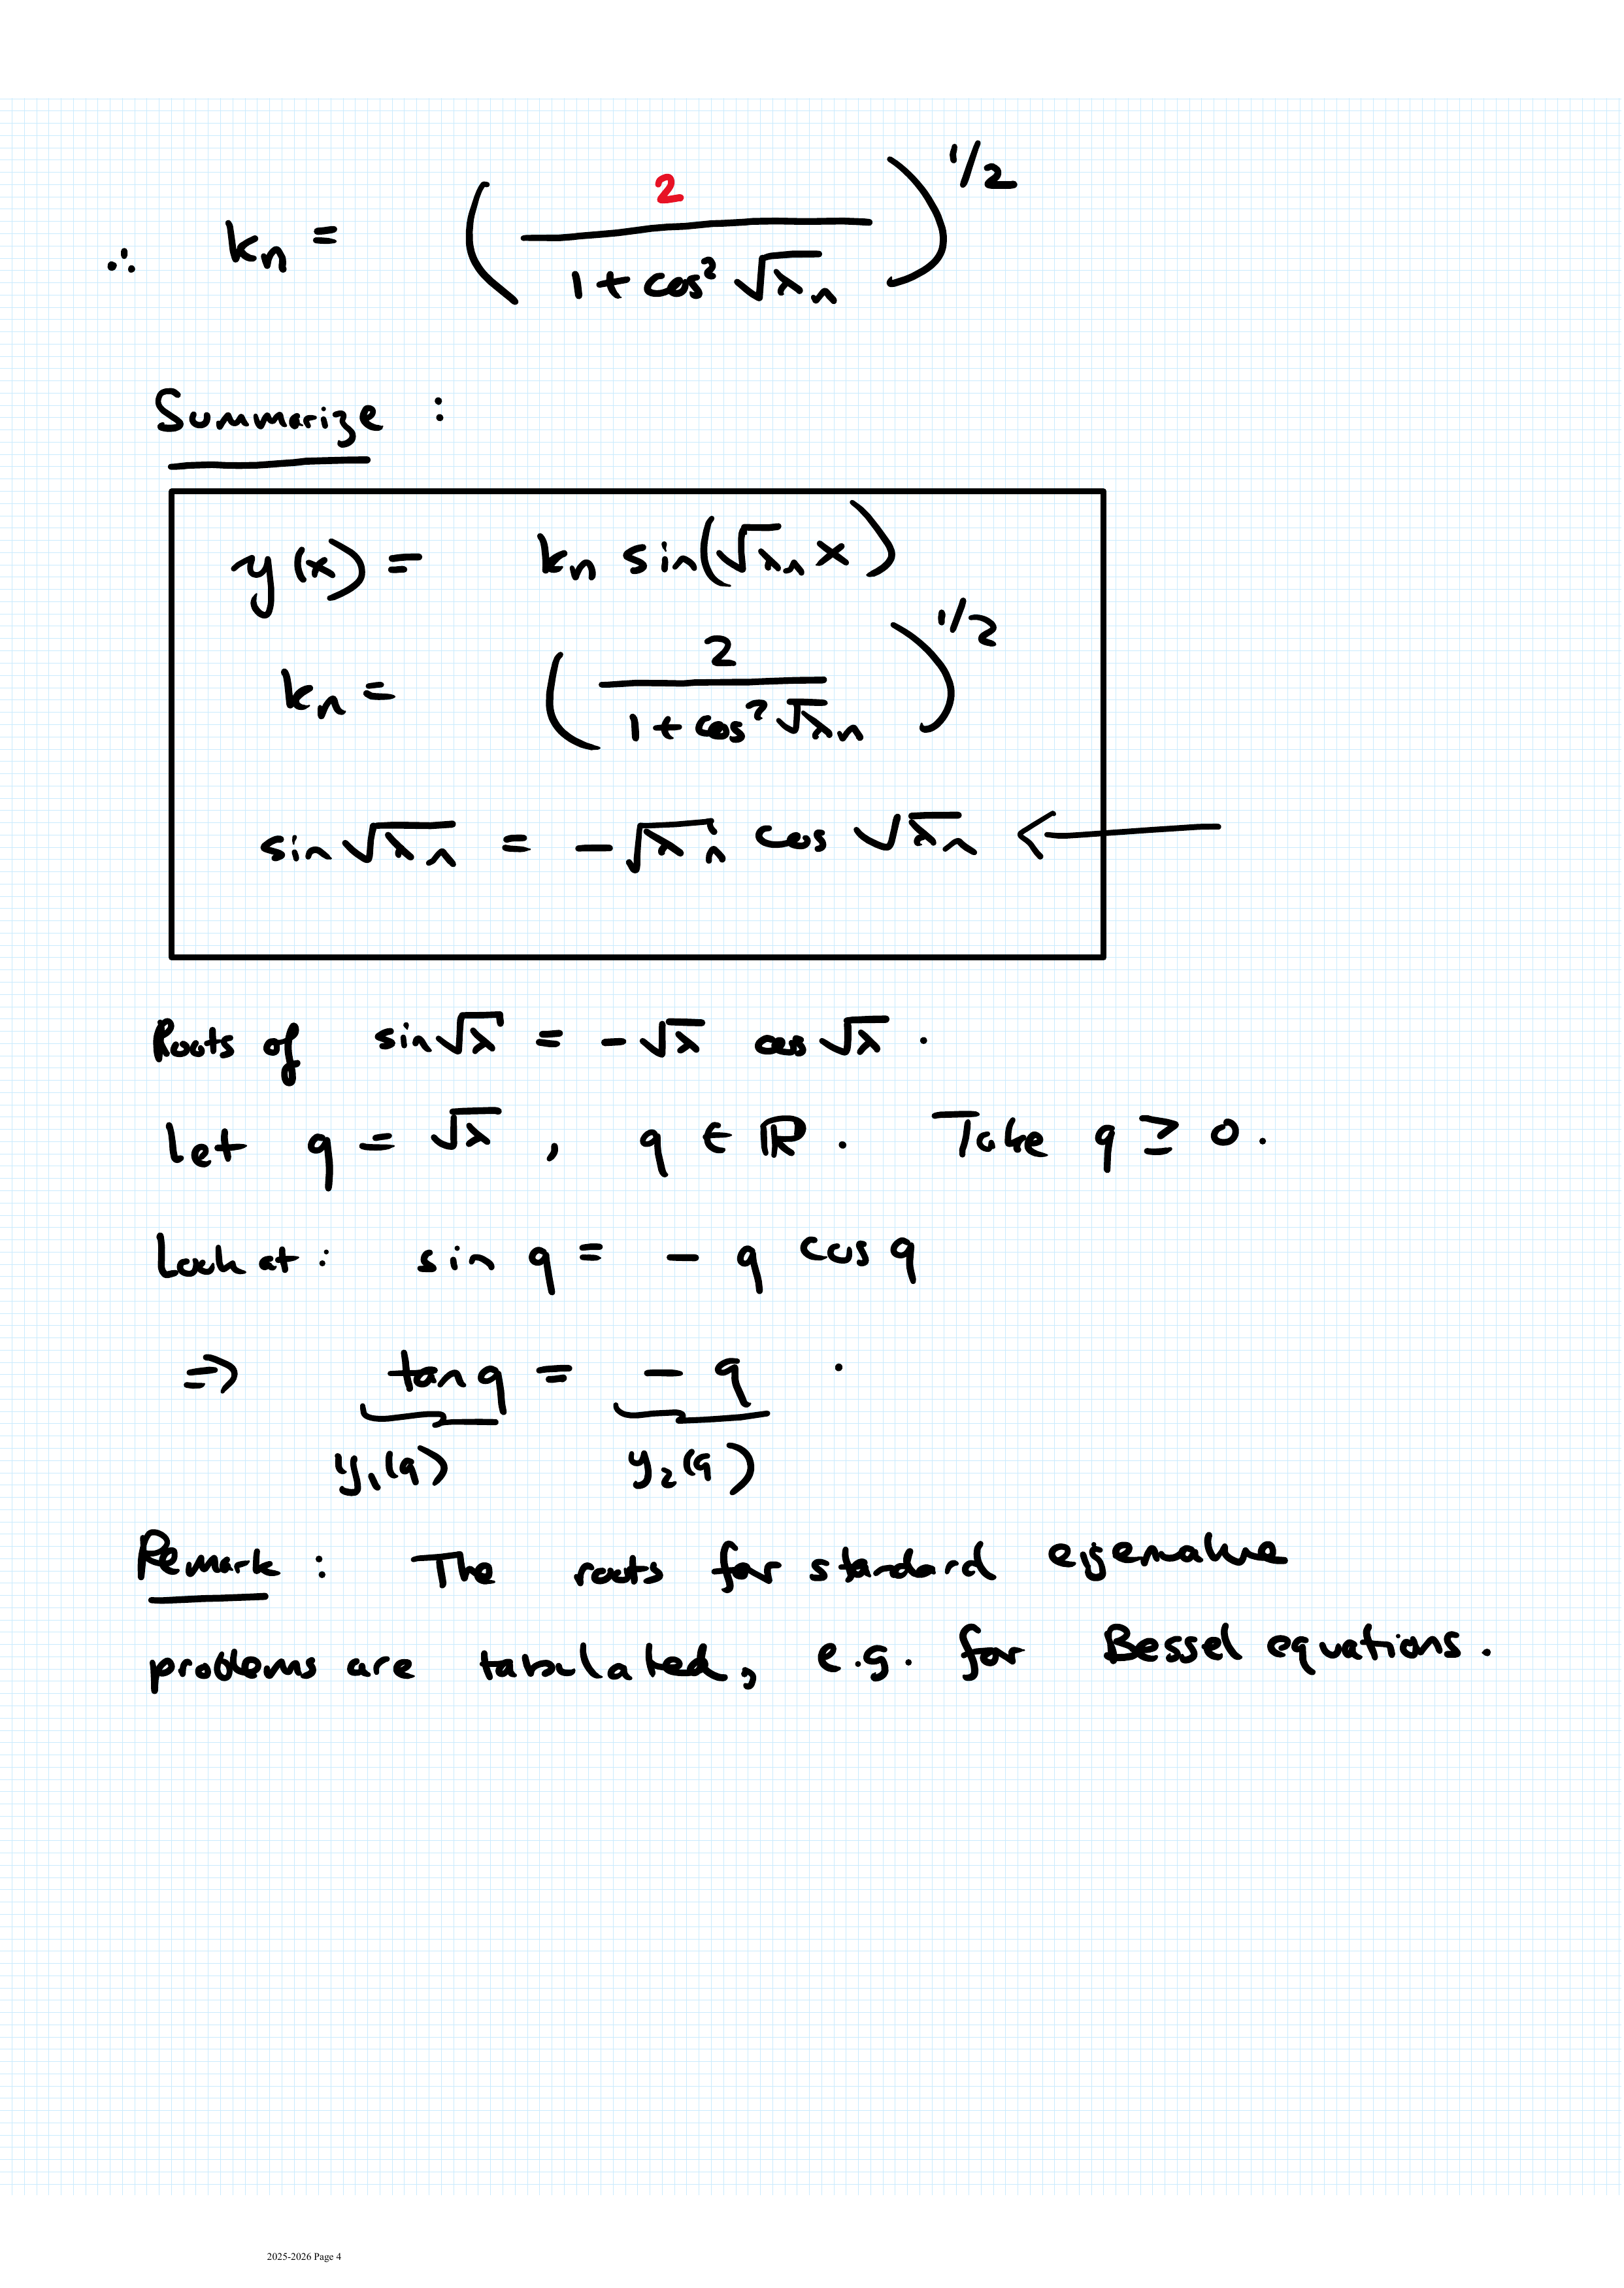 ∴ kₙ = ( 2 / (1 + cos² √λₙ) )^1/2
Summarize :
y(x) = kₙ sin(√λₙ x)
kₙ = ( 2 / (1 + cos² √λₙ) )^1/2
sin √λₙ = - √λₙ cos √λₙ ←
Roots of sin √λ = - √λ cos √λ .
Let q = √λ , q ∈ ℝ . Take q ≥ 0 .
Look at : sin q = - q cos q
⇒ tan q = - q .
y₁(q) y₂(q)
Remark : The roots for standard eigenvalue
problems are tabulated, e.g. for Bessel equations .
2025-2026 Page 4